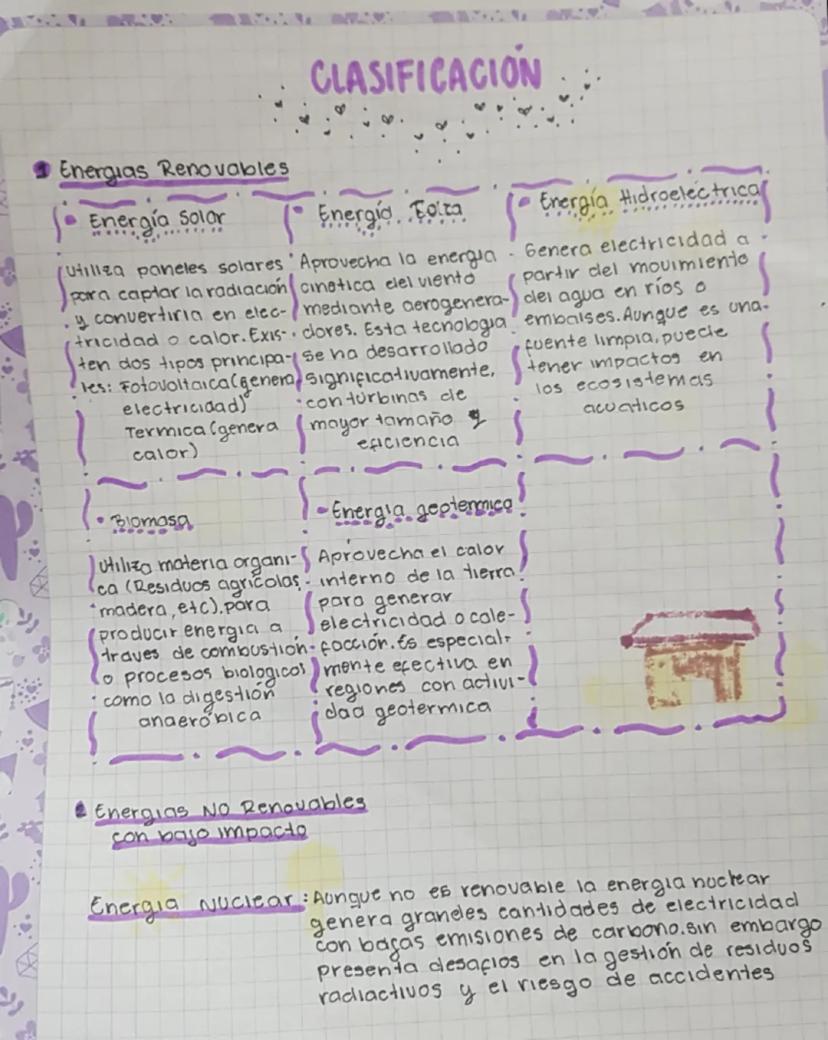 CLASIFICACIÓN
1 Energias Renovables
• Energía Solar
Utiliza paneles solares
para captar la radiación
y convertirla en elec-
tricidad o calor. Exis-
ten dos tipos principa-
les: Fotovoltaica (genera
electricidad)
Termica (genera
calor)
• Energía Eolica
Aprovecha la energia
cinetica del viento
mediante aerogenera-
dores. Esta tecnologia
se ha desarrollado
significativamente,
con turbinas de
mayor tamaño y
eficiencia
• Energía Hidroelectrica
Genera electricidad a
partir del movimiento
del agua en ríos o
embalses. Aunque es una
fuente limpia, puede
tener impactos en
los ecosistemas
acuaticos
• Biomasa
Utiliza materia organi-
ca (Residuos agricolas
madera, etc). para
producir energia a
traves de combustión
o procesos biologicos
como la digestión
anaeróbica
- Energia geotermica
Aprovecha el calor
interno de la tierra
para generar
electricidad o cale-
facción. Es especial-
mente efectiva en
regiones con activi-
dad geotermica
2 Energias NO Renovables
con bajo impacto
Energia Nuclear: Aunque no es renovable la energia nuclear
genera grandes cantidades de electricidad
con bajas emisiones de carbono. sin embargo
presenta desafios en la gestión de residuos
radiactivos y el riesgo de accidentes